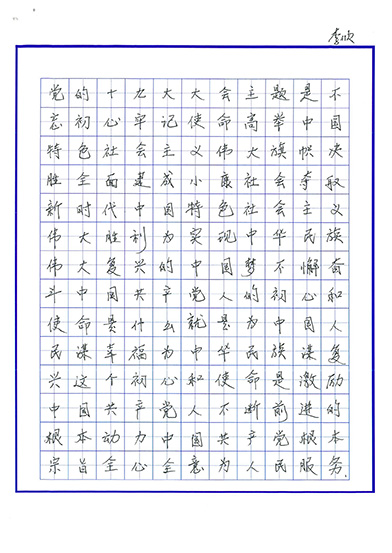 李欣
党的十九大大会主题是不
忘初心牢记使命高举中国
特色社会主义伟大旗帜决
胜全面建成小康社会夺取
新时代中国特色社会主义
伟大胜利为实现中华民族
伟大复兴的中国梦不懈奋
斗中国共产党人的初心和
使命是什么就是为中国人
民谋幸福为中华民族谋复
兴这个初心和使命是激励
中国共产党人不断前进的
根本动力中国共产党根本
宗旨全心全意为人民服务.